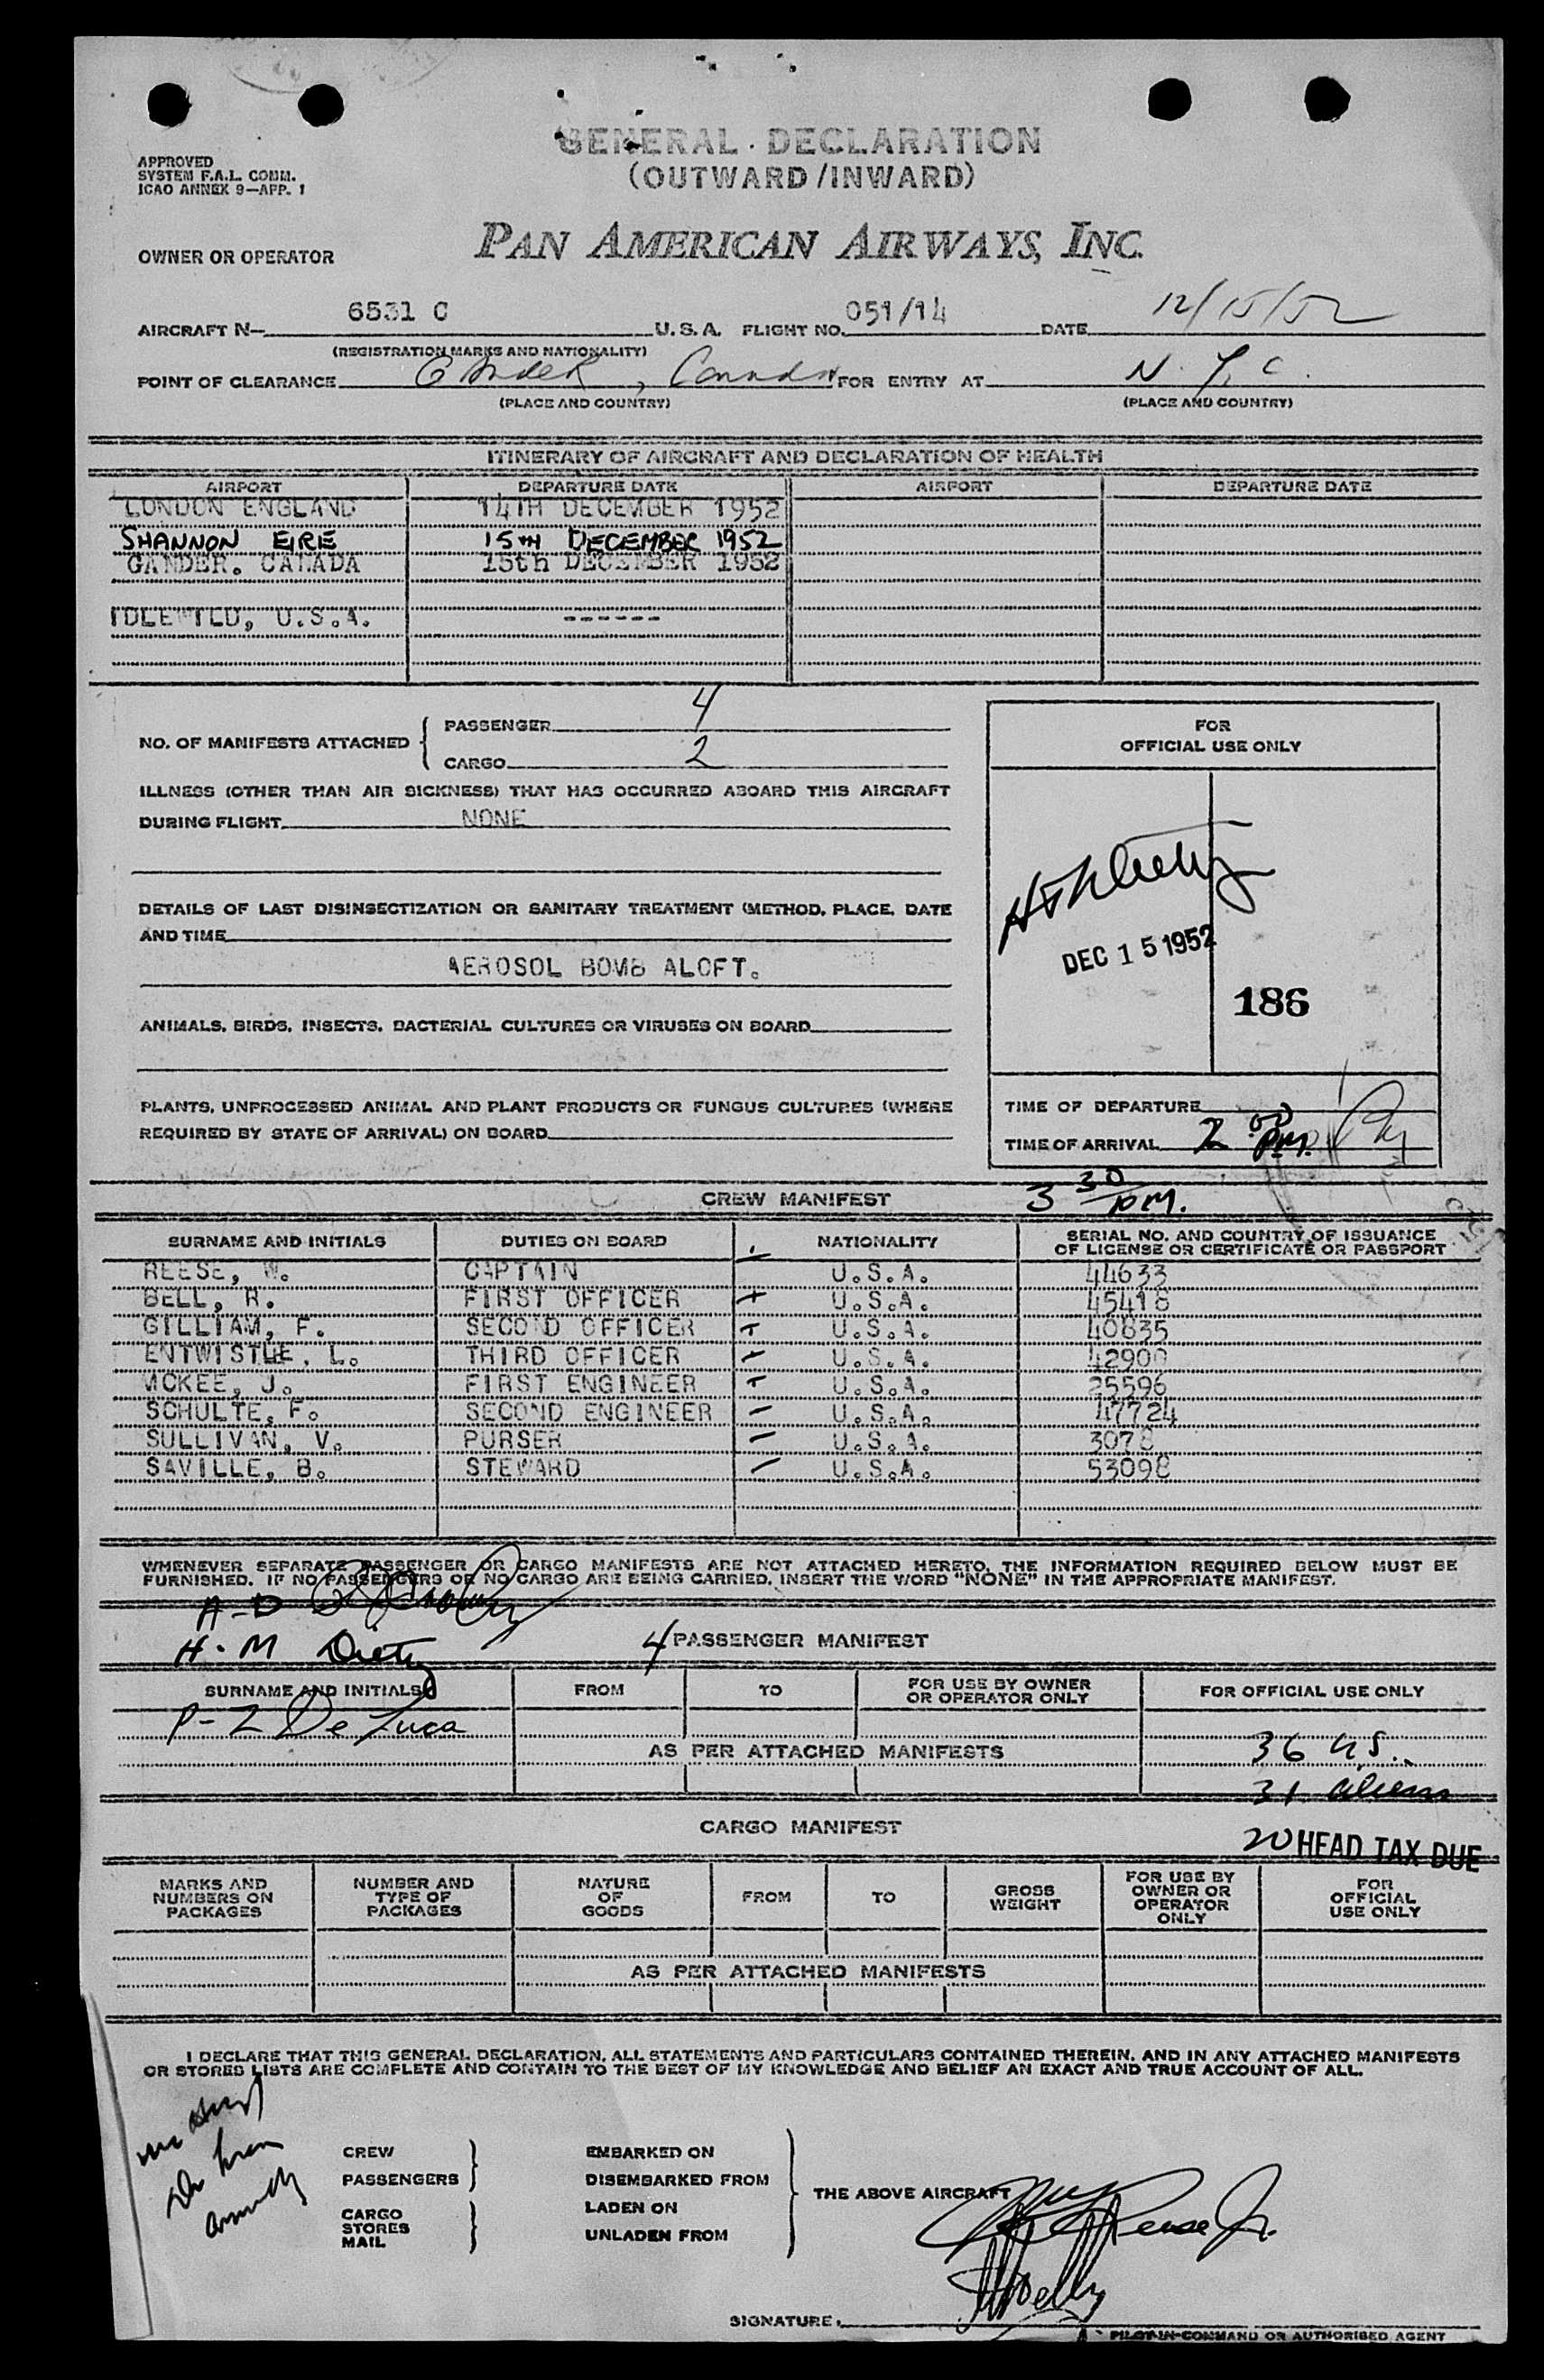 GENERAL DECLARATION
(OUTWARD/INWARD)
APPROVED
SYSTEM F.A.L. COMM.
ICAO ANNEX 9—APP. 1
OWNER OR OPERATOR PAN AMERICAN AIRWAYS, INC.
AIRCRAFT N— 6531 C U.S.A. FLIGHT NO. 051/14 DATE 12/15/52
(REGISTRATION MARKS AND NATIONALITY)
POINT OF CLEARANCE Gander, Canada FOR ENTRY AT N.Y.C.
(PLACE AND COUNTRY) (PLACE AND COUNTRY)
ITINERARY OF AIRCRAFT AND DECLARATION OF HEALTH
AIRPORT DEPARTURE DATE AIRPORT DEPARTURE DATE
LONDON ENGLAND 14TH DECEMBER 1952
SHANNON EIRE 15TH DECEMBER 1952
GANDER. CANADA 15th DECEMBER 1952
IDLEWILD, U.S.A. ------
NO. OF MANIFESTS ATTACHED PASSENGER 4
CARGO 2
ILLNESS (OTHER THAN AIR SICKNESS) THAT HAS OCCURRED ABOARD THIS AIRCRAFT
DURING FLIGHT NONE
DETAILS OF LAST DISINSECTIZATION OR SANITARY TREATMENT (METHOD, PLACE, DATE
AND TIME
AEROSOL BOMB ALOFT.
ANIMALS, BIRDS, INSECTS, BACTERIAL CULTURES OR VIRUSES ON BOARD
PLANTS, UNPROCESSED ANIMAL AND PLANT PRODUCTS OR FUNGUS CULTURES (WHERE
REQUIRED BY STATE OF ARRIVAL) ON BOARD
FOR
OFFICIAL USE ONLY
DEC 15 1952
186
TIME OF DEPARTURE
TIME OF ARRIVAL 2 00 PM.
3 30 PM.
CREW MANIFEST
SURNAME AND INITIALS DUTIES ON BOARD NATIONALITY SERIAL NO. AND COUNTRY OF ISSUANCE
OF LICENSE OR CERTIFICATE OR PASSPORT
REESE, W. CAPTAIN U.S.A. 44633
BELL, R. FIRST OFFICER U.S.A. 45418
GILLIAM, F. SECOND OFFICER U.S.A. 40835
ENTWISTLE, L. THIRD OFFICER U.S.A. 42900
MCKEE, J. FIRST ENGINEER U.S.A. 25596
SCHULTE, F. SECOND ENGINEER U.S.A. 47724
SULLIVAN, V. PURSER U.S.A. 3078
SAVILLE, B. STEWARD U.S.A. 53098
WHENEVER SEPARATE PASSENGER OR CARGO MANIFESTS ARE NOT ATTACHED HERETO, THE INFORMATION REQUIRED BELOW MUST BE
FURNISHED. IF NO PASSENGERS OR NO CARGO ARE BEING CARRIED, INSERT THE WORD "NONE" IN THE APPROPRIATE MANIFEST.
A-D
H-M Dietz
4 PASSENGER MANIFEST
SURNAME AND INITIALS FROM TO FOR USE BY OWNER
OR OPERATOR ONLY FOR OFFICIAL USE ONLY
P-Z De Luca
AS PER ATTACHED MANIFESTS
36 US.
31 aliens
CARGO MANIFEST
20 HEAD TAX DUE
MARKS AND
NUMBERS ON
PACKAGES
NUMBER AND
TYPE OF
PACKAGES
NATURE
OF
GOODS
FROM
TO
GROSS
WEIGHT
FOR USE BY
OWNER OR
OPERATOR
ONLY
FOR
OFFICIAL
USE ONLY
AS PER ATTACHED MANIFESTS
I DECLARE THAT THIS GENERAL DECLARATION, ALL STATEMENTS AND PARTICULARS CONTAINED THEREIN, AND IN ANY ATTACHED MANIFESTS
OR STORES LISTS ARE COMPLETE AND CONTAIN TO THE BEST OF MY KNOWLEDGE AND BELIEF AN EXACT AND TRUE ACCOUNT OF ALL.
CREW
PASSENGERS
CARGO
STORES
MAIL
EMBARKED ON
DISEMBARKED FROM
LADEN ON
UNLADEN FROM
THE ABOVE AIRCRAFT
Reese Jr.
SIGNATURE:
PILOT-IN-COMMAND OR AUTHORISED AGENT